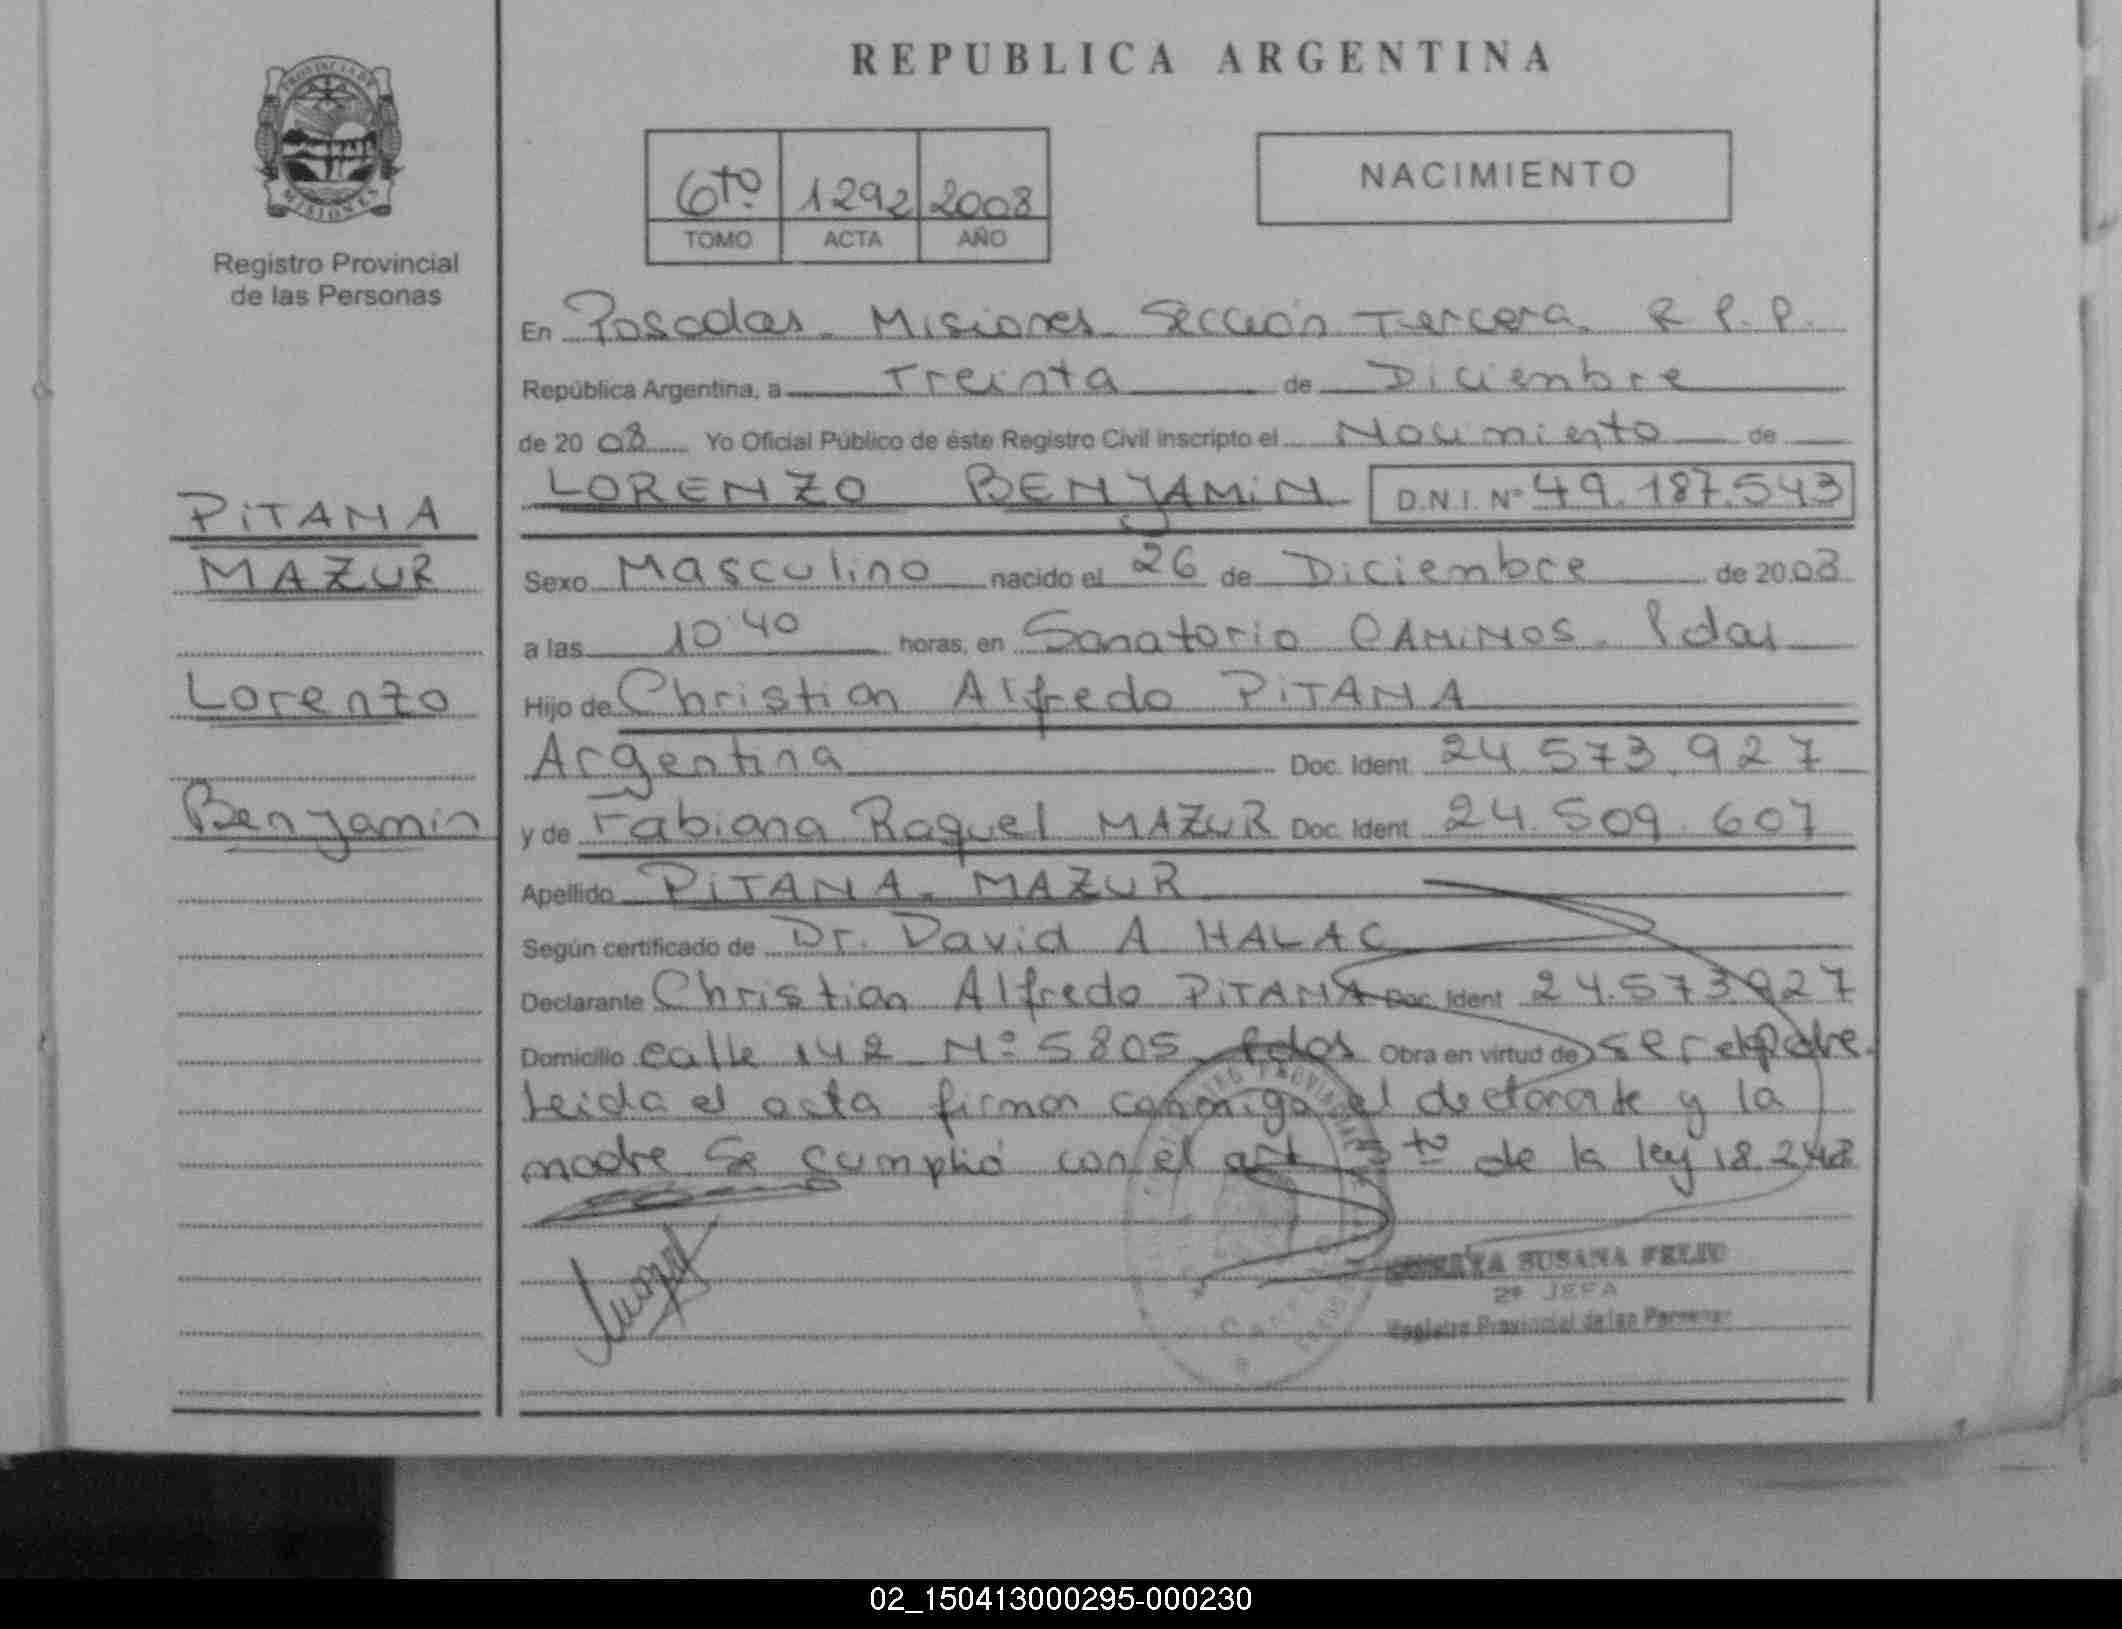 REPUBLICA ARGENTINA
PROVINCIA DE
MISIONES
Registro Provincial
de las Personas
6to. 1292 2008
TOMO ACTA AÑO
NACIMIENTO
En Posadas. Misiones. Sección Tercera. R.P.P.
República Argentina, a Treinta de Diciembre
de 20 08 Yo Oficial Público de éste Registro Civil inscripto el Nacimiento de
LORENZO BENJAMIN D.N.I. Nº 49.187.543
PITANA
MAZUR
Lorenzo
Benjamin
Sexo Masculino nacido el 26 de Diciembre de 20 08
a las 10 40 horas, en Sanatorio CAMINOS. Pdas
Hijo de Christian Alfredo PITANA
Argentina Doc. Ident 24.573.927
y de Fabiana Raquel MAZUR Doc. Ident 24.509.607
Apellido PITANA. MAZUR
Según certificado de Dr. David A HALAC
Declarante Christian Alfredo PITANA Doc. Ident 24.573.927
Domicilio calle 142 Nº 5805 Pdas Obra en virtud de ser el padre.
Leida el acta firman conmigo el declarante y la
madre Se cumplió con el art de la ley 18.248
SUSANA FELIU
2ª JEFA
Registro Provincial de las Personas
02_150413000295-000230